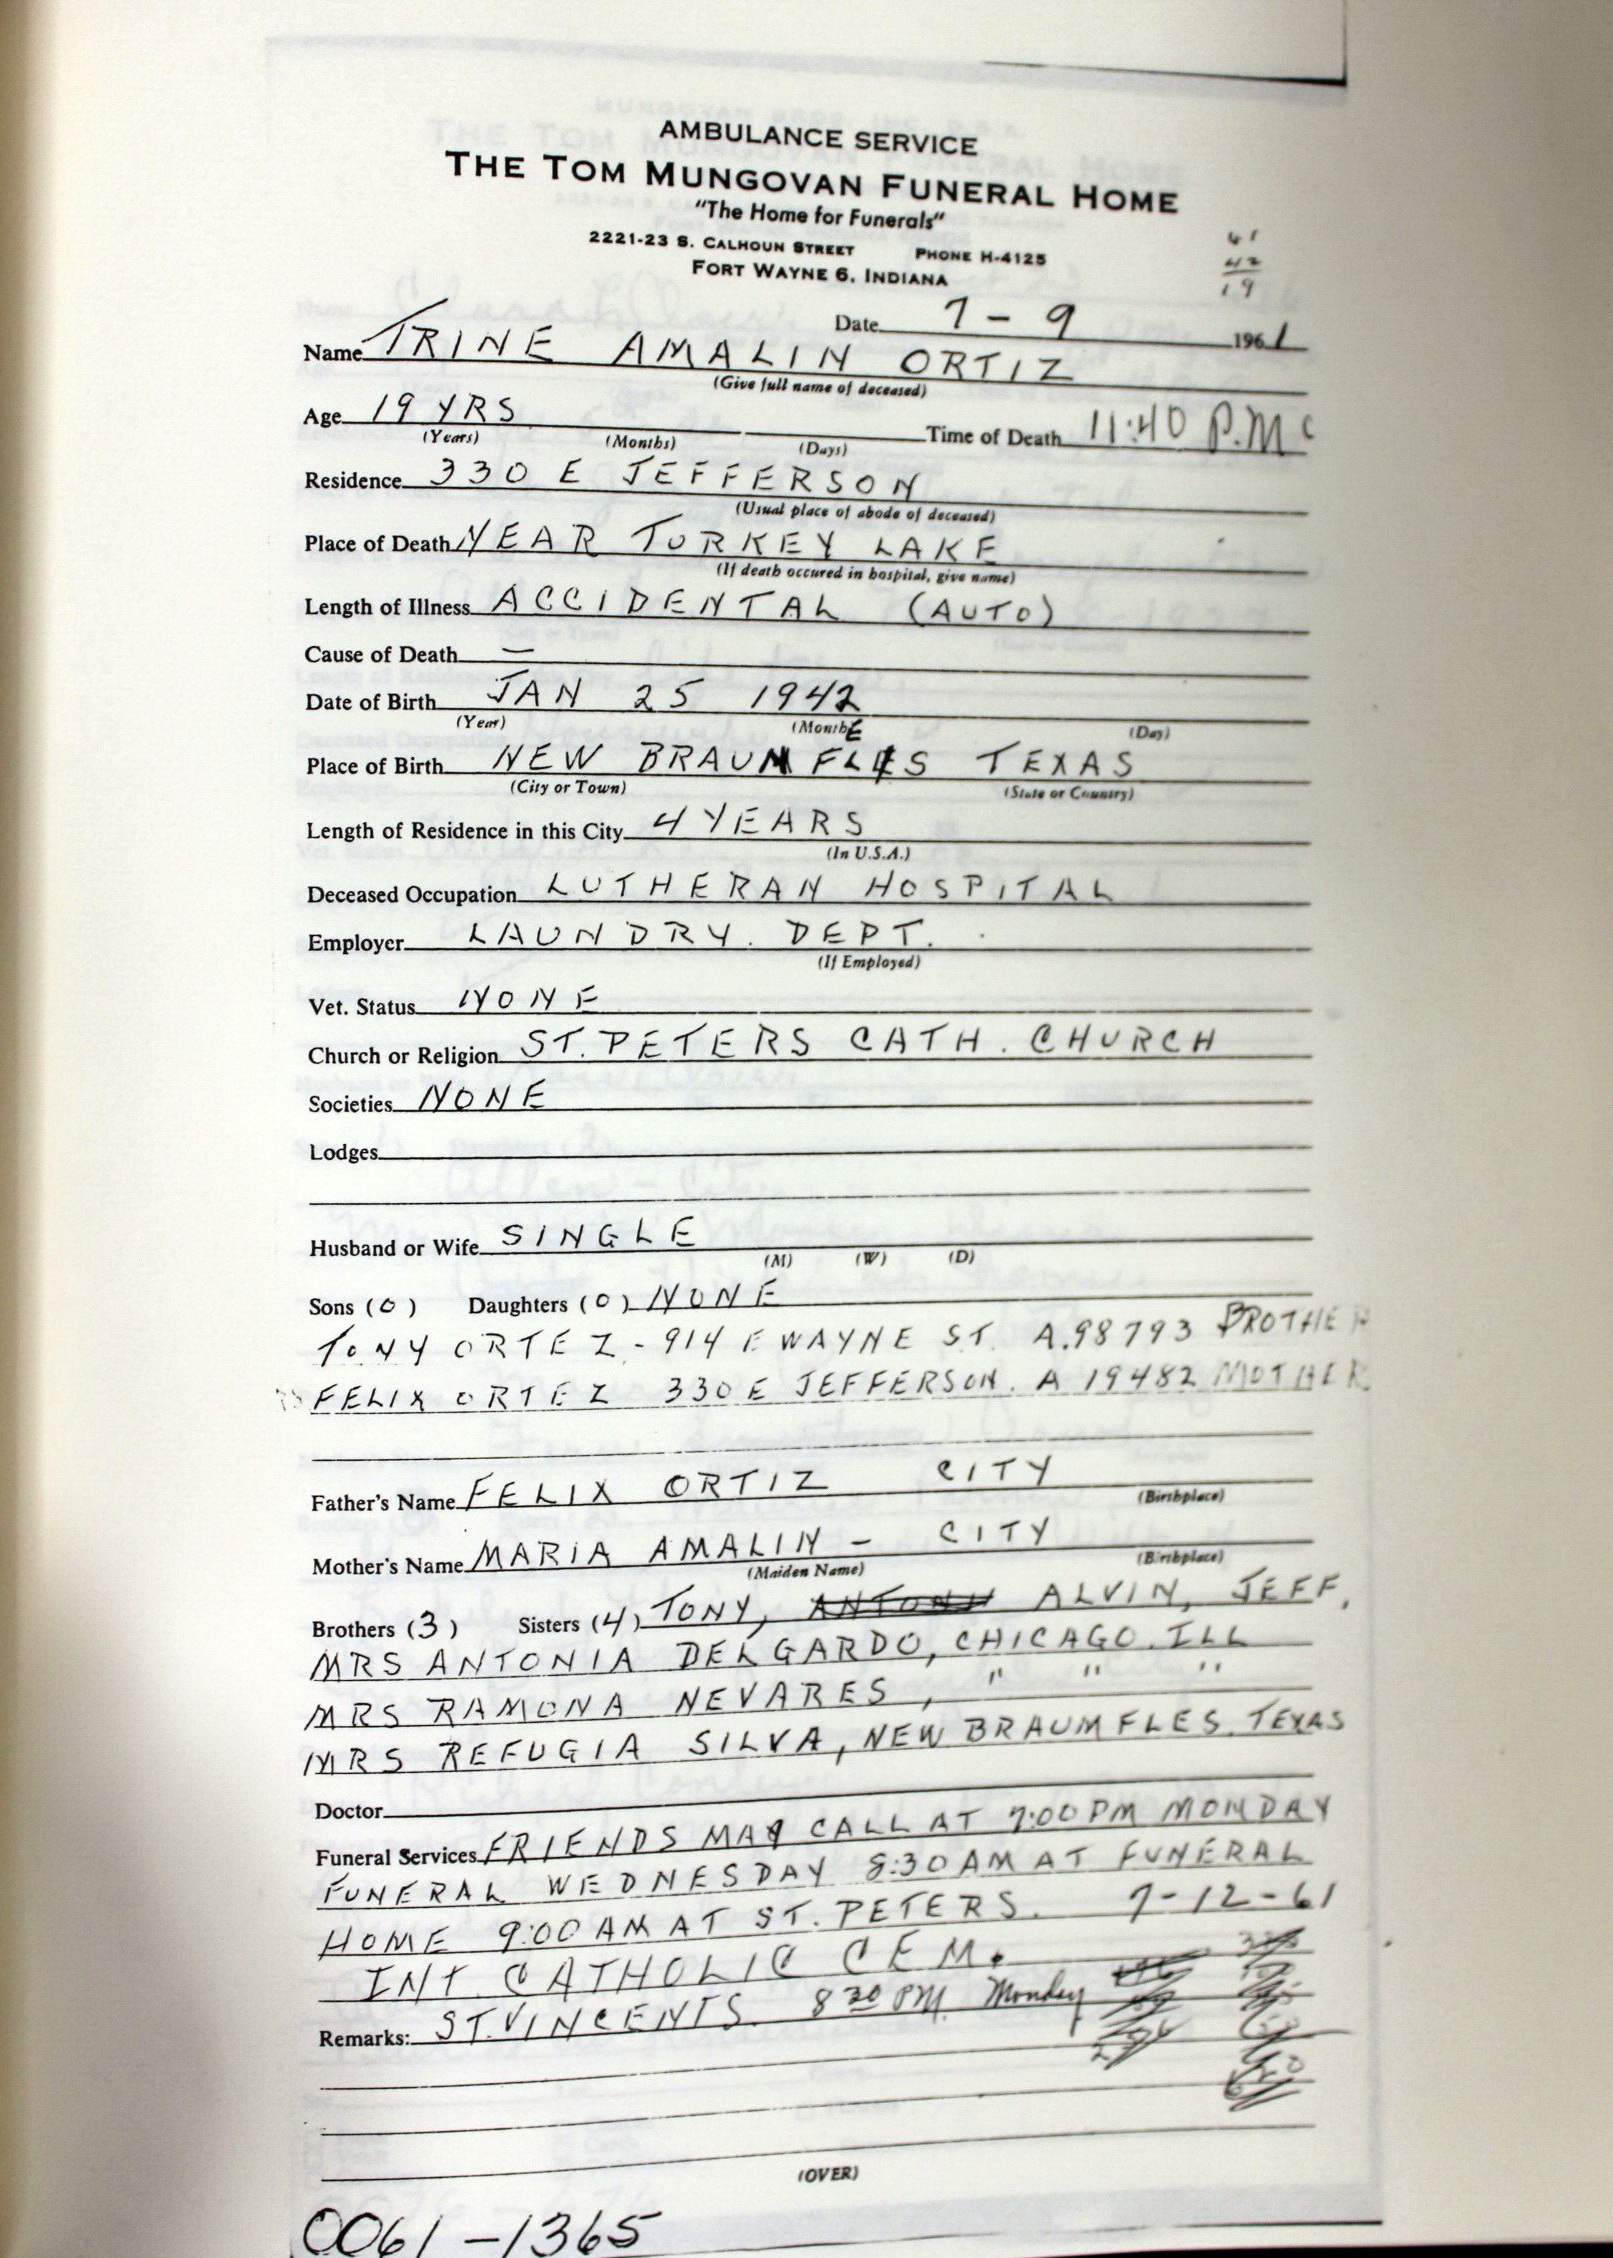 AMBULANCE SERVICE
THE TOM MUNGOVAN FUNERAL HOME
"The Home for Funerals"
2221-23 S. CALHOUN STREET PHONE H-4125
FORT WAYNE 6, INDIANA
61
42
19
Date 7-9 1961
Name TRINE AMALIN ORTIZ
(Give full name of deceased)
Age 19 YRS Time of Death 11:40 P.M
(Years) (Months) (Days)
Residence 330 E JEFFERSON
(Usual place of abode of deceased)
Place of Death NEAR TURKEY LAKE
(If death occured in hospital, give name)
Length of Illness ACCIDENTAL (AUTO)
Cause of Death —
Date of Birth JAN 25 1942
(Year) (Month) (Day)
Place of Birth NEW BRAUNFLES TEXAS
(City or Town) (State or Country)
Length of Residence in this City 4 YEARS
(In U.S.A.)
Deceased Occupation LUTHERAN HOSPITAL
Employer LAUNDRY. DEPT.
(If Employed)
Vet. Status NONE
Church or Religion ST. PETERS CATH. CHURCH
Societies NONE
Lodges
Husband or Wife SINGLE
(M) (W) (D)
Sons (0) Daughters (0) NONE
TONY ORTEZ - 914 E WAYNE ST. A.98793 BROTHER
FELIX ORTEZ 330 E JEFFERSON. A 19482 MOTHER
Father's Name FELIX ORTIZ CITY
(Birthplace)
Mother's Name MARIA AMALIN - CITY
(Maiden Name) (Birthplace)
Brothers (3) Sisters (4) TONY, ANTONY ALVIN, JEFF,
MRS ANTONIA DELGARDO, CHICAGO. ILL
MRS RAMONA NEVARES, " " "
MRS REFUGIA SILVA, NEW BRAUMFLES. TEXAS
Doctor
Funeral Services FRIENDS MAY CALL AT 7:00 PM MONDAY
FUNERAL WEDNESDAY 8:30 AM AT FUNERAL
HOME 9:00 AM AT ST. PETERS. 7-12-61
INT. CATHOLIC CEM.
Remarks: ST. VINCENTS. 8 30 PM. Monday
(OVER)
0061-1365